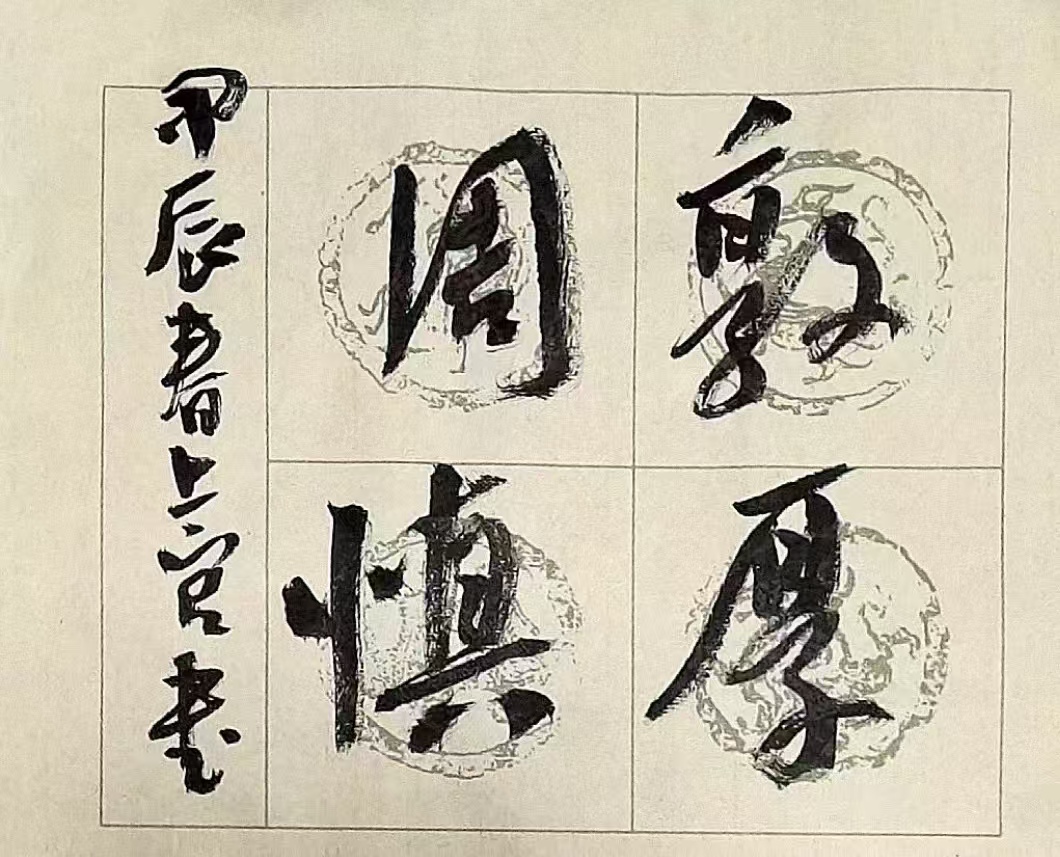 敦厚
周慎
甲辰春上官书